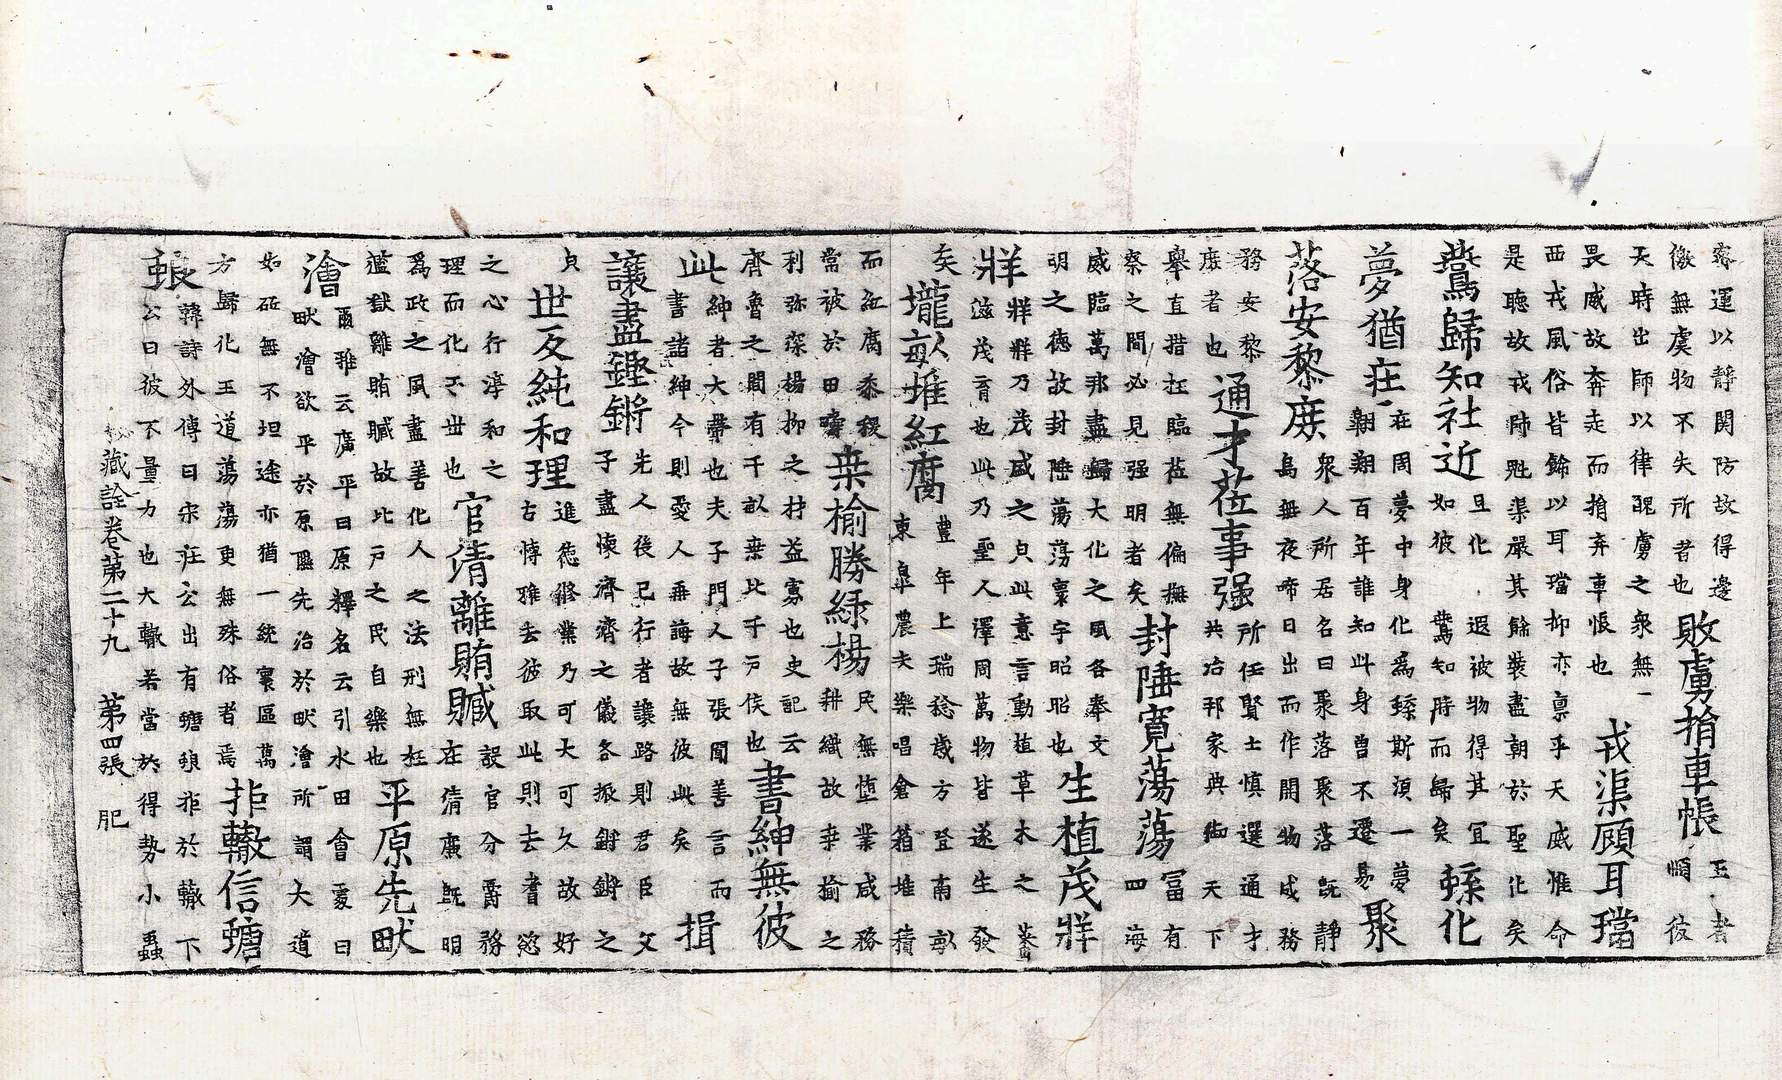 寮運以靜関防故得邊 敗虜捎車帳 王者
儌無虞物不失所者也 順彼
天時出師以律醜虜之衆無 戎渠顧耳璫
畏威故奔走而捎弃車帳也
西戎風俗皆餙以耳璫抑亦稟乎天威惟命
是聽故戎帥兠渠嚴其餘裝盡朝於聖化矣
鷰歸知社近 且化遐被物得其宜 蝝化
如彼鷰知時而歸矣
夢猶在 在周夢中身化為蝝斯湏一夢 聚
翺翔百年誰知此身曽不遷易
落安黎庶 衆人所居名曰聚落聚落旣靜
鳥無夜啼日出而作開物成務
務安黎 通才莅事强 所任賢士慎選通才
庶者也 共治邦家典御天下
舉直措枉臨莅無偏撫 封陲寛蕩蕩 冨有
察之間必見强明者矣 四海
威臨萬邦盡歸大化之風各奉文 生植茂牂
明之德故封陲蕩蕩寰宇昭昭也
牂 牂牂乃茂盛之皃此意言動植草木之
滋茂育也此乃聖人澤周萬物皆遂生發
矣 壠畝堆紅腐 豊年上瑞稔歳方登南畝
東臯農夫樂唱倉箱堆積
而紅腐黍稷 桒榆勝緑楊 民無墮業咸務
當被於田疇 耕織故桒榆之
利弥深楊抑之材益寡也史記云 書紳無彼
齊魯之間有千畝桒比千戸侯也
此 紳者大帶也夫子門人子張聞善言而 揖
書諸紳今則愛人毒誨故無彼此矣
讓盡鏗鏘 先人後已行者讓路則君臣父
子盡懐濟濟之儀各振鏘鏘之
皃 世反純和理 進德修業乃可大可久故好
古愽雅去彼取此則去耆慾
之心行淳和之 官清離賄贓 設官分爵務
理而化不丗也 在清㢘旣明
爲政之風盡善化人之法刑無枉 平原先畎
濫獄離賄贓故比戸之民自樂也
澮 爾雅云廣平曰原釋名云引水田會夌曰
畎澮欲平於原隰先治於畎澮所謂大道
如砥無不坦途亦猶一統寰區萬 拒轍信螗
方歸化王道蕩蕩更無殊俗者焉
蜋 韓詩外傳曰宋莊公出有螗蜋拒於轍下
公曰彼不量力也大轍若當於得勢小蟲
秘藏詮卷第二十九 第四張 肥